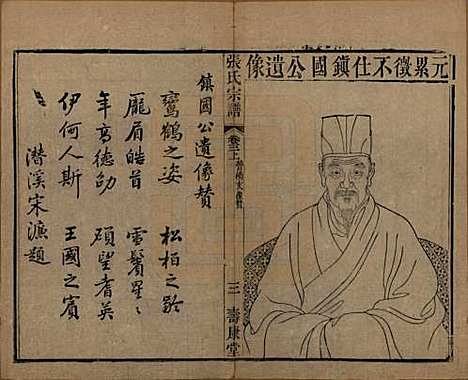 元累徵不仕鎮國公遺像
張氏宗譜
卷三上
三
壽康堂
鎮國公遺像贊
鸞鶴之姿 松柏之齡
龐眉皓首 雪鬢星星
年高德劭 碩望耆英
伊何人斯 王國之賓
潛溪宋濂題